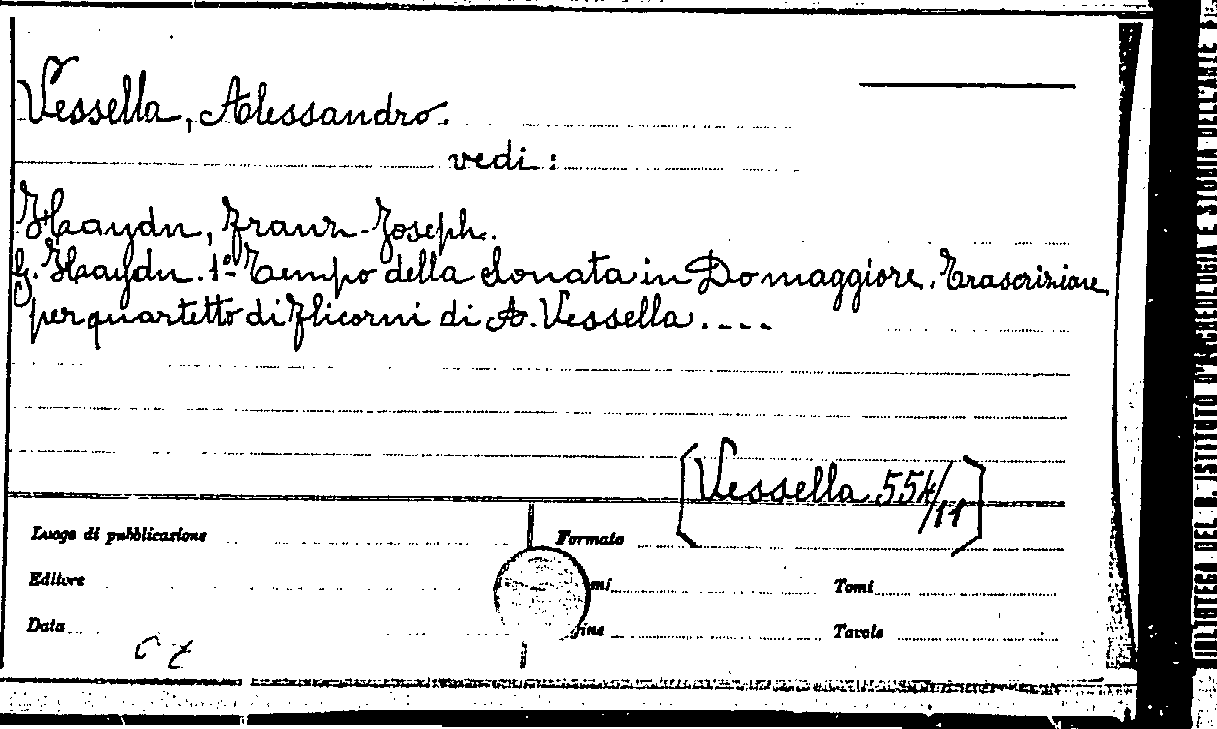 Vessella, Alessandro.
vedi:
Haydn, Franz-Joseph.
G. Haydn. 1º Tempo della Sonata in Do maggiore. Trascrizione
per quartetto di Flicorni di A. Vessella....
[Vessella 554/11]
Luogo di pubblicazione
Formato
Editore
mi
Tomi
Data
gine
Tavole
BIBLIOTECA DEL R. ISTITUTO D'ARCHEOLOGIA E STORIA DELL'ARTE